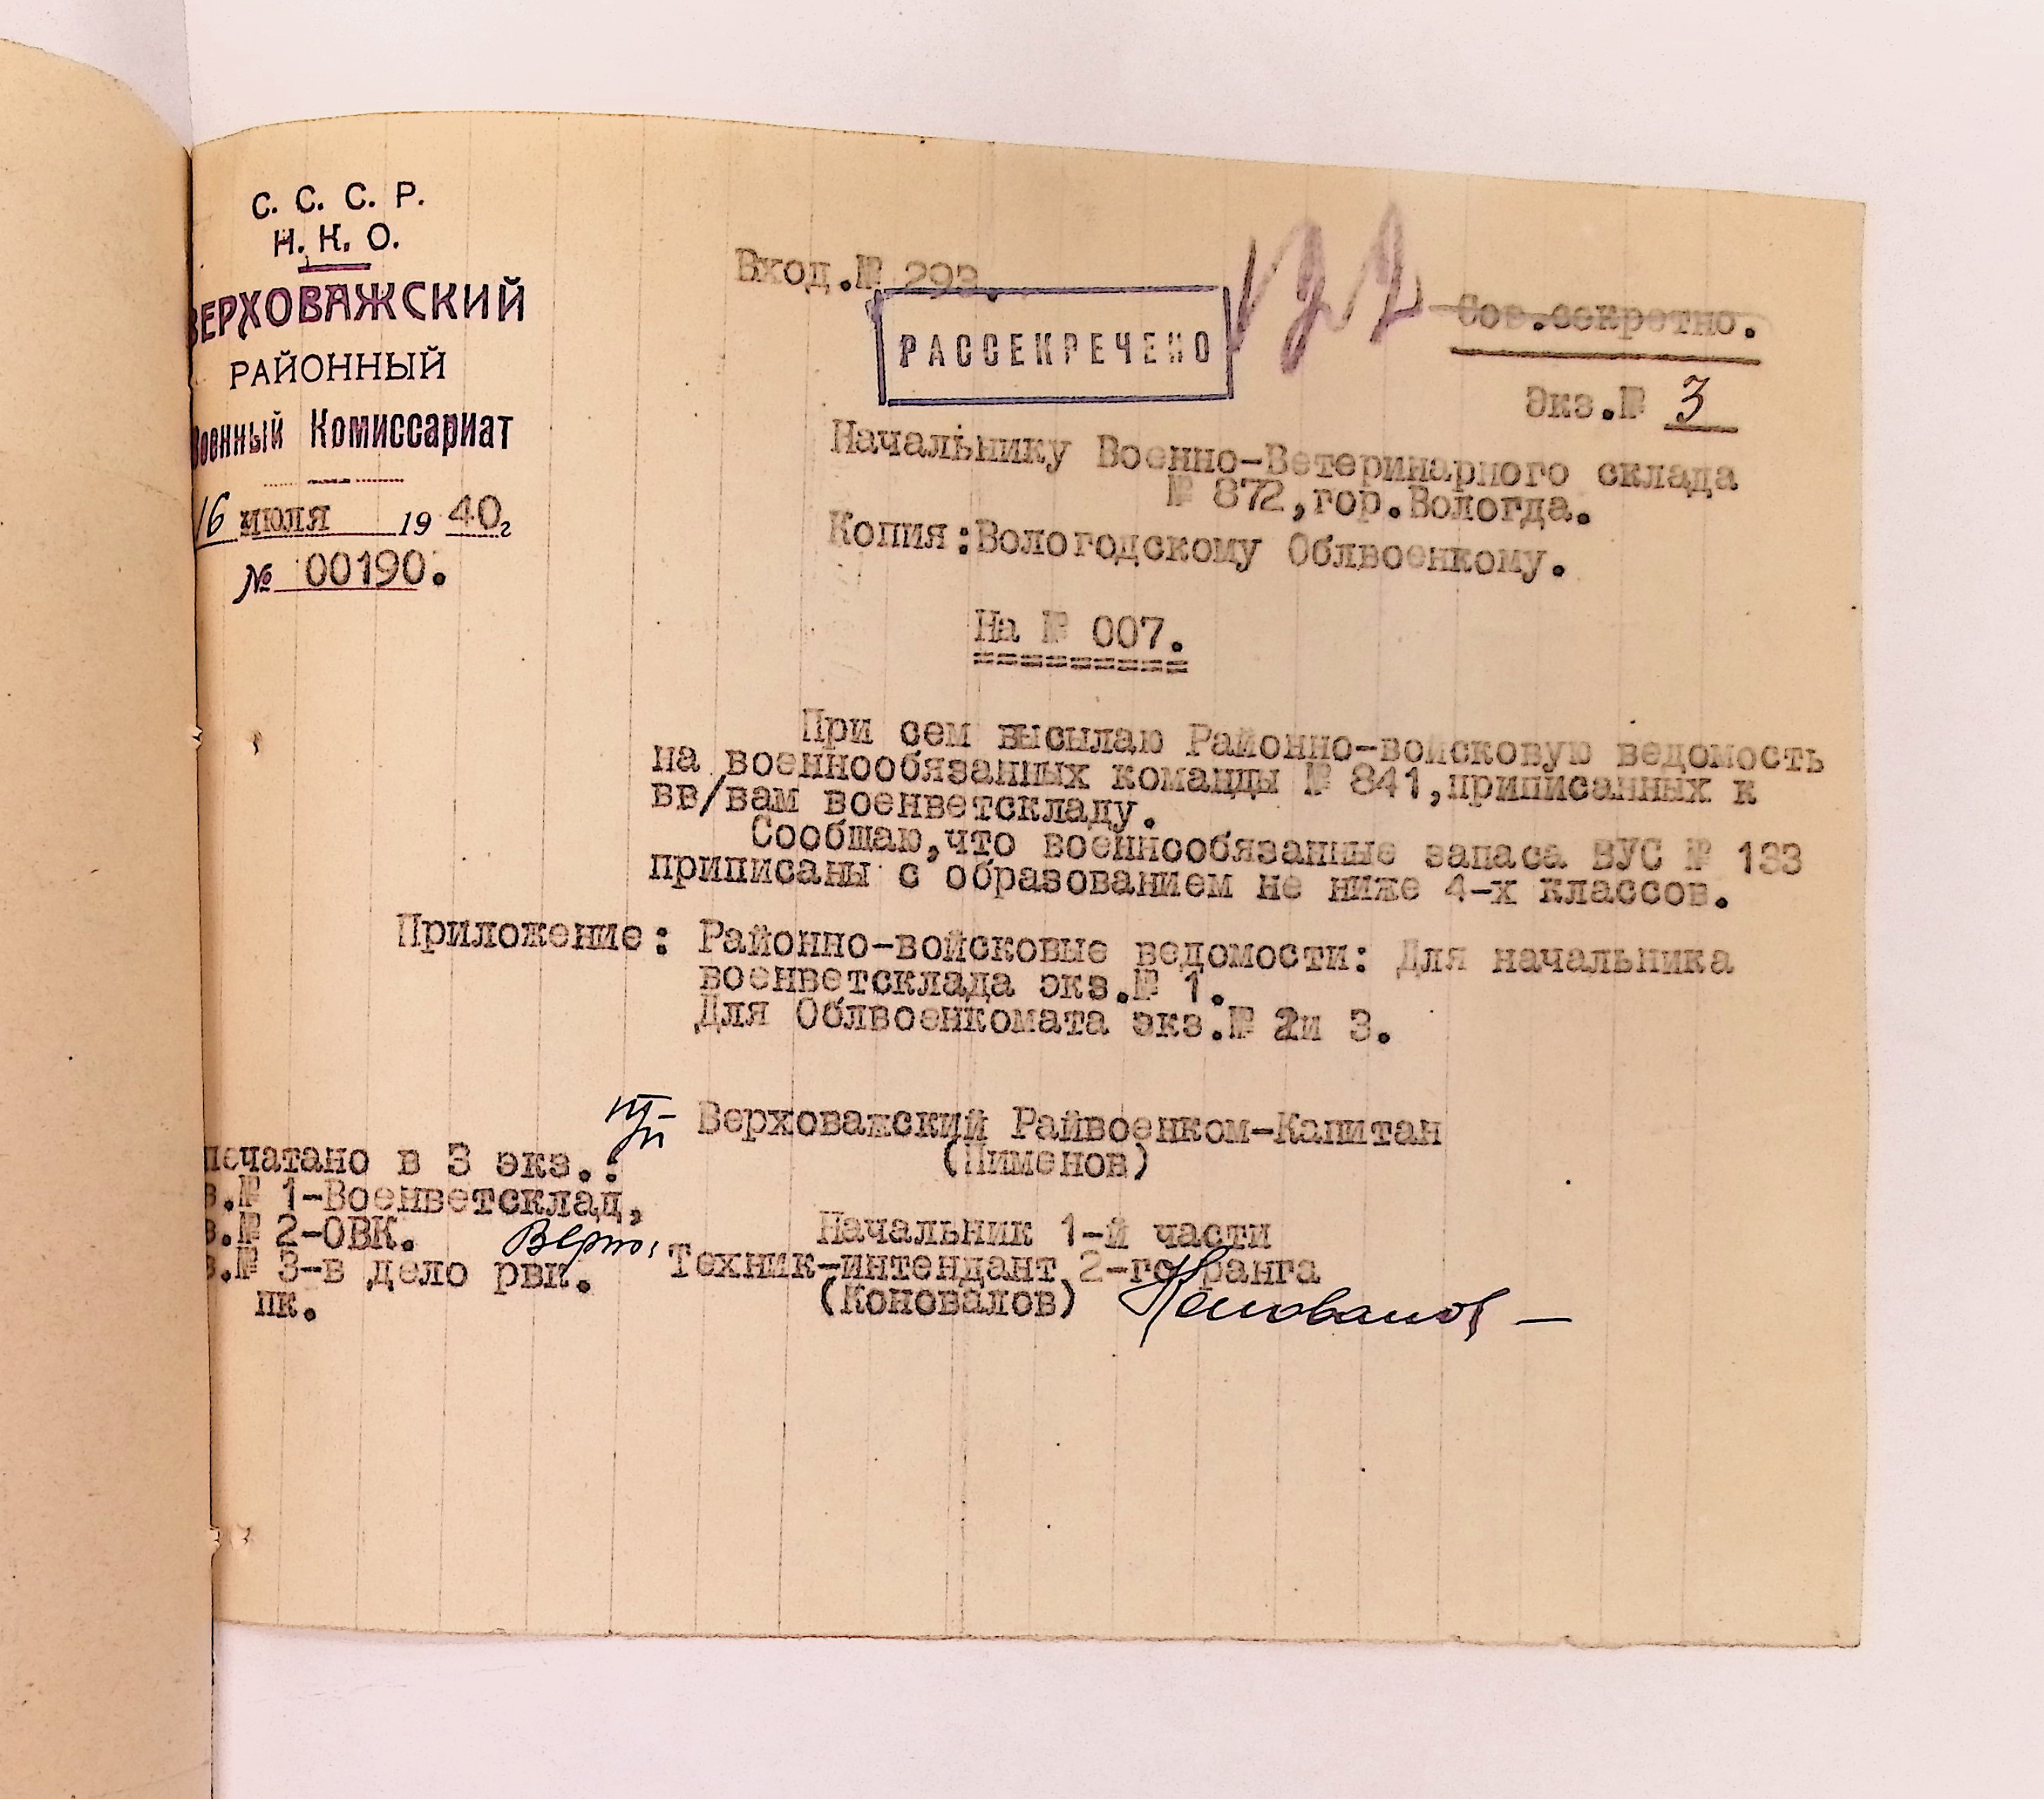 С. С. С. Р.
Н. К. О.
ВЕРХОВАЖСКИЙ
РАЙОННЫЙ
Военный Комиссариат
16 июля 1940г
№ 00190.
Вход.№ 293.
РАССЕКРЕЧЕНО
Сов.секретно.
Экз.№ 3
Начальнику Военно-Ветеринарного склада
№ 872,гор.Вологда.
Копия:Вологодскому Облвоенкому.
На № 007.
==========
При сем высылаю Районно-войсковую ведомость
на военнообязанных команды № 841,приписанных к
вв/вам военветскладу.
Сообщаю,что военнообязанные запаса ВУС № 133
приписаны с образованием не ниже 4-х классов.
Приложение: Районно-войсковые ведомости: Для начальника
военветсклада экз.№ 1.
Для Облвоенкомата экз.№ 2и 3.
Верховажский Райвоенком-Капитан
(Пименов)
печатано в 3 экз.:
з.№ 1-Военветсклад,
з.№ 2-ОВК.
з.№ 3-в дело рвк.
пк.
Верно:
Начальник 1-й части
Техник-интендант 2-го ранга
(Коновалов) Коновалов